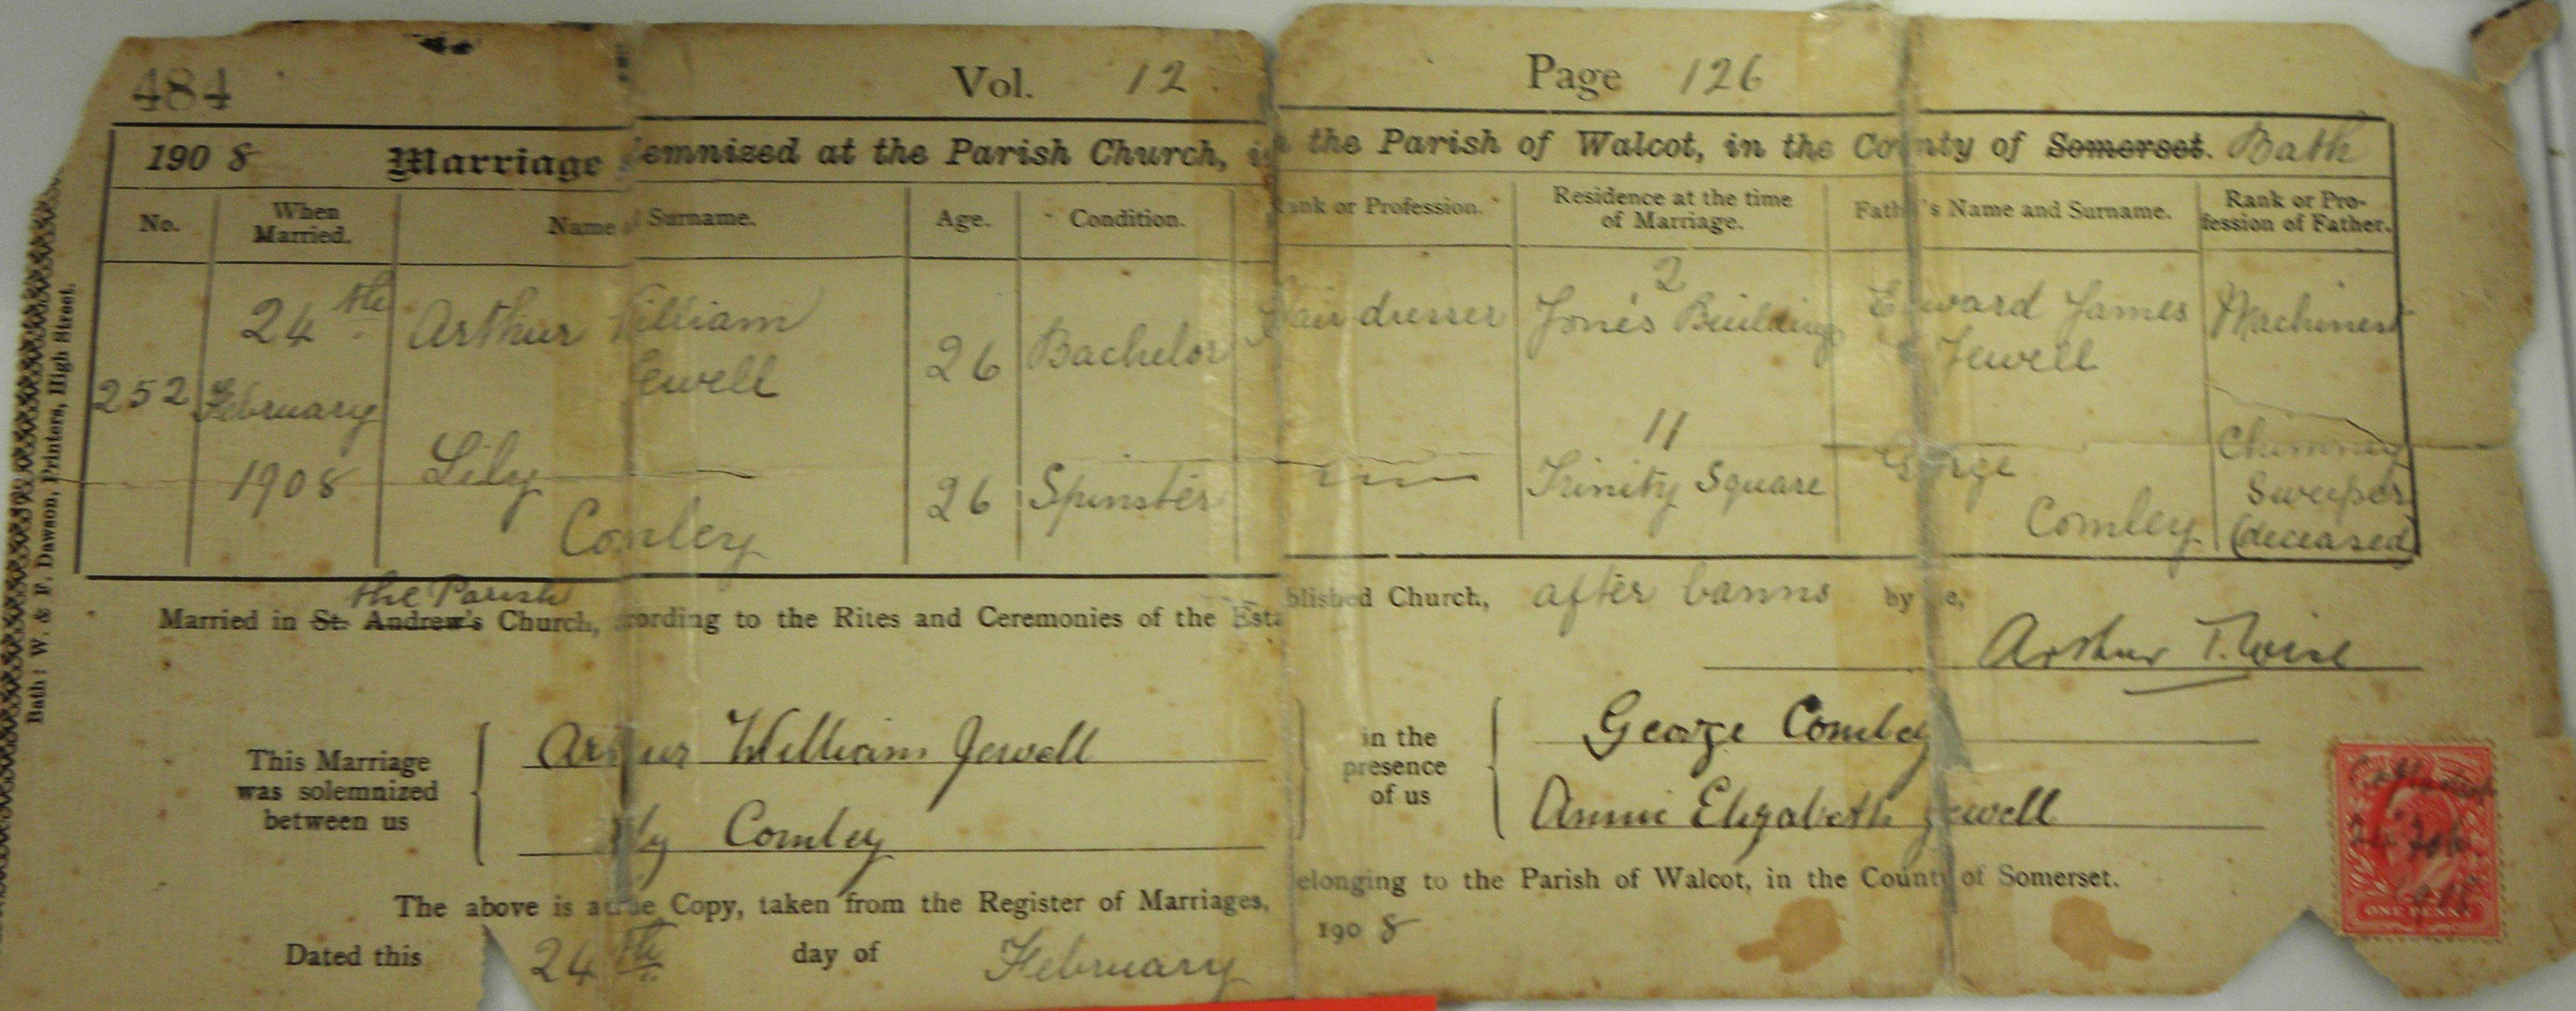 484 Vol. 12 Page 126
1908 Marriage solemnized at the Parish Church, in the Parish of Walcot, in the County of Somerset. Bath
No. When Married. Name & Surname. Age. Condition. Rank or Profession. Residence at the time of Marriage. Father's Name and Surname. Rank or Profession of Father.
252 24th February 1908 Arthur William Jewell 26 Bachelor Hairdresser 2 Jone's Buildings Edward James Jewell Machinest
Lily Comley 26 Spinster 11 Trinity Square George Comley Chimney Sweeper (deceased)
the Parish
Married in St. Andrew's Church, according to the Rites and Ceremonies of the Established Church, after banns by me,
Arthur T. Wise
This Marriage was solemnized between us
Arthur William Jewell
Lily Comley
in the presence of us
George Comley
Annie Elizabeth Jewell
The above is a true Copy, taken from the Register of Marriages, belonging to the Parish of Walcot, in the County of Somerset.
Dated this 24th day of February 1908
Bath: W. & F. Dawson, Printers, High Street.
ONE PENNY